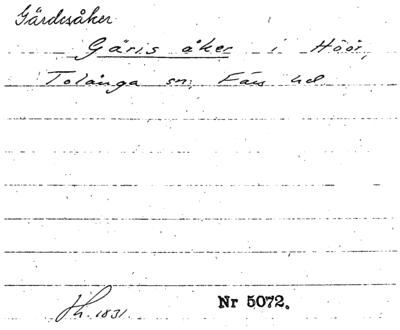 Gärdsåker
Gäris åker i Höör,
Tolånga sn, Färs hd.
Jh. 1831.
Nr 5072.